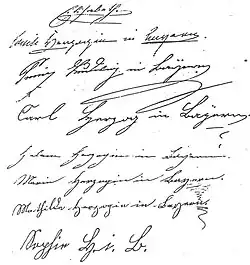 Elisabeth
Louis Herzogin in Bayern
Ludwig in Bayern
Carl Herzog in Bayern
Helene Herzogin in Bayern
Marie Herzogin in Bayern.
Mathilde Herzogin in Bayern
Sophie Hz. i. B.